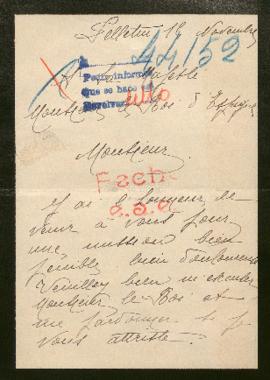 Felletin 19 Novembre
44152
Pedir informe
que se hace
Monsieur le Roi d'Espagne
Monsieur,
Fecha
J'ai l'honneur de
venir à vous pour
une mission bien
pénible bien douloureuse
Veuillez bien m'excuser
Monsieur le Roi et
me pardonner si je
vous attriste.